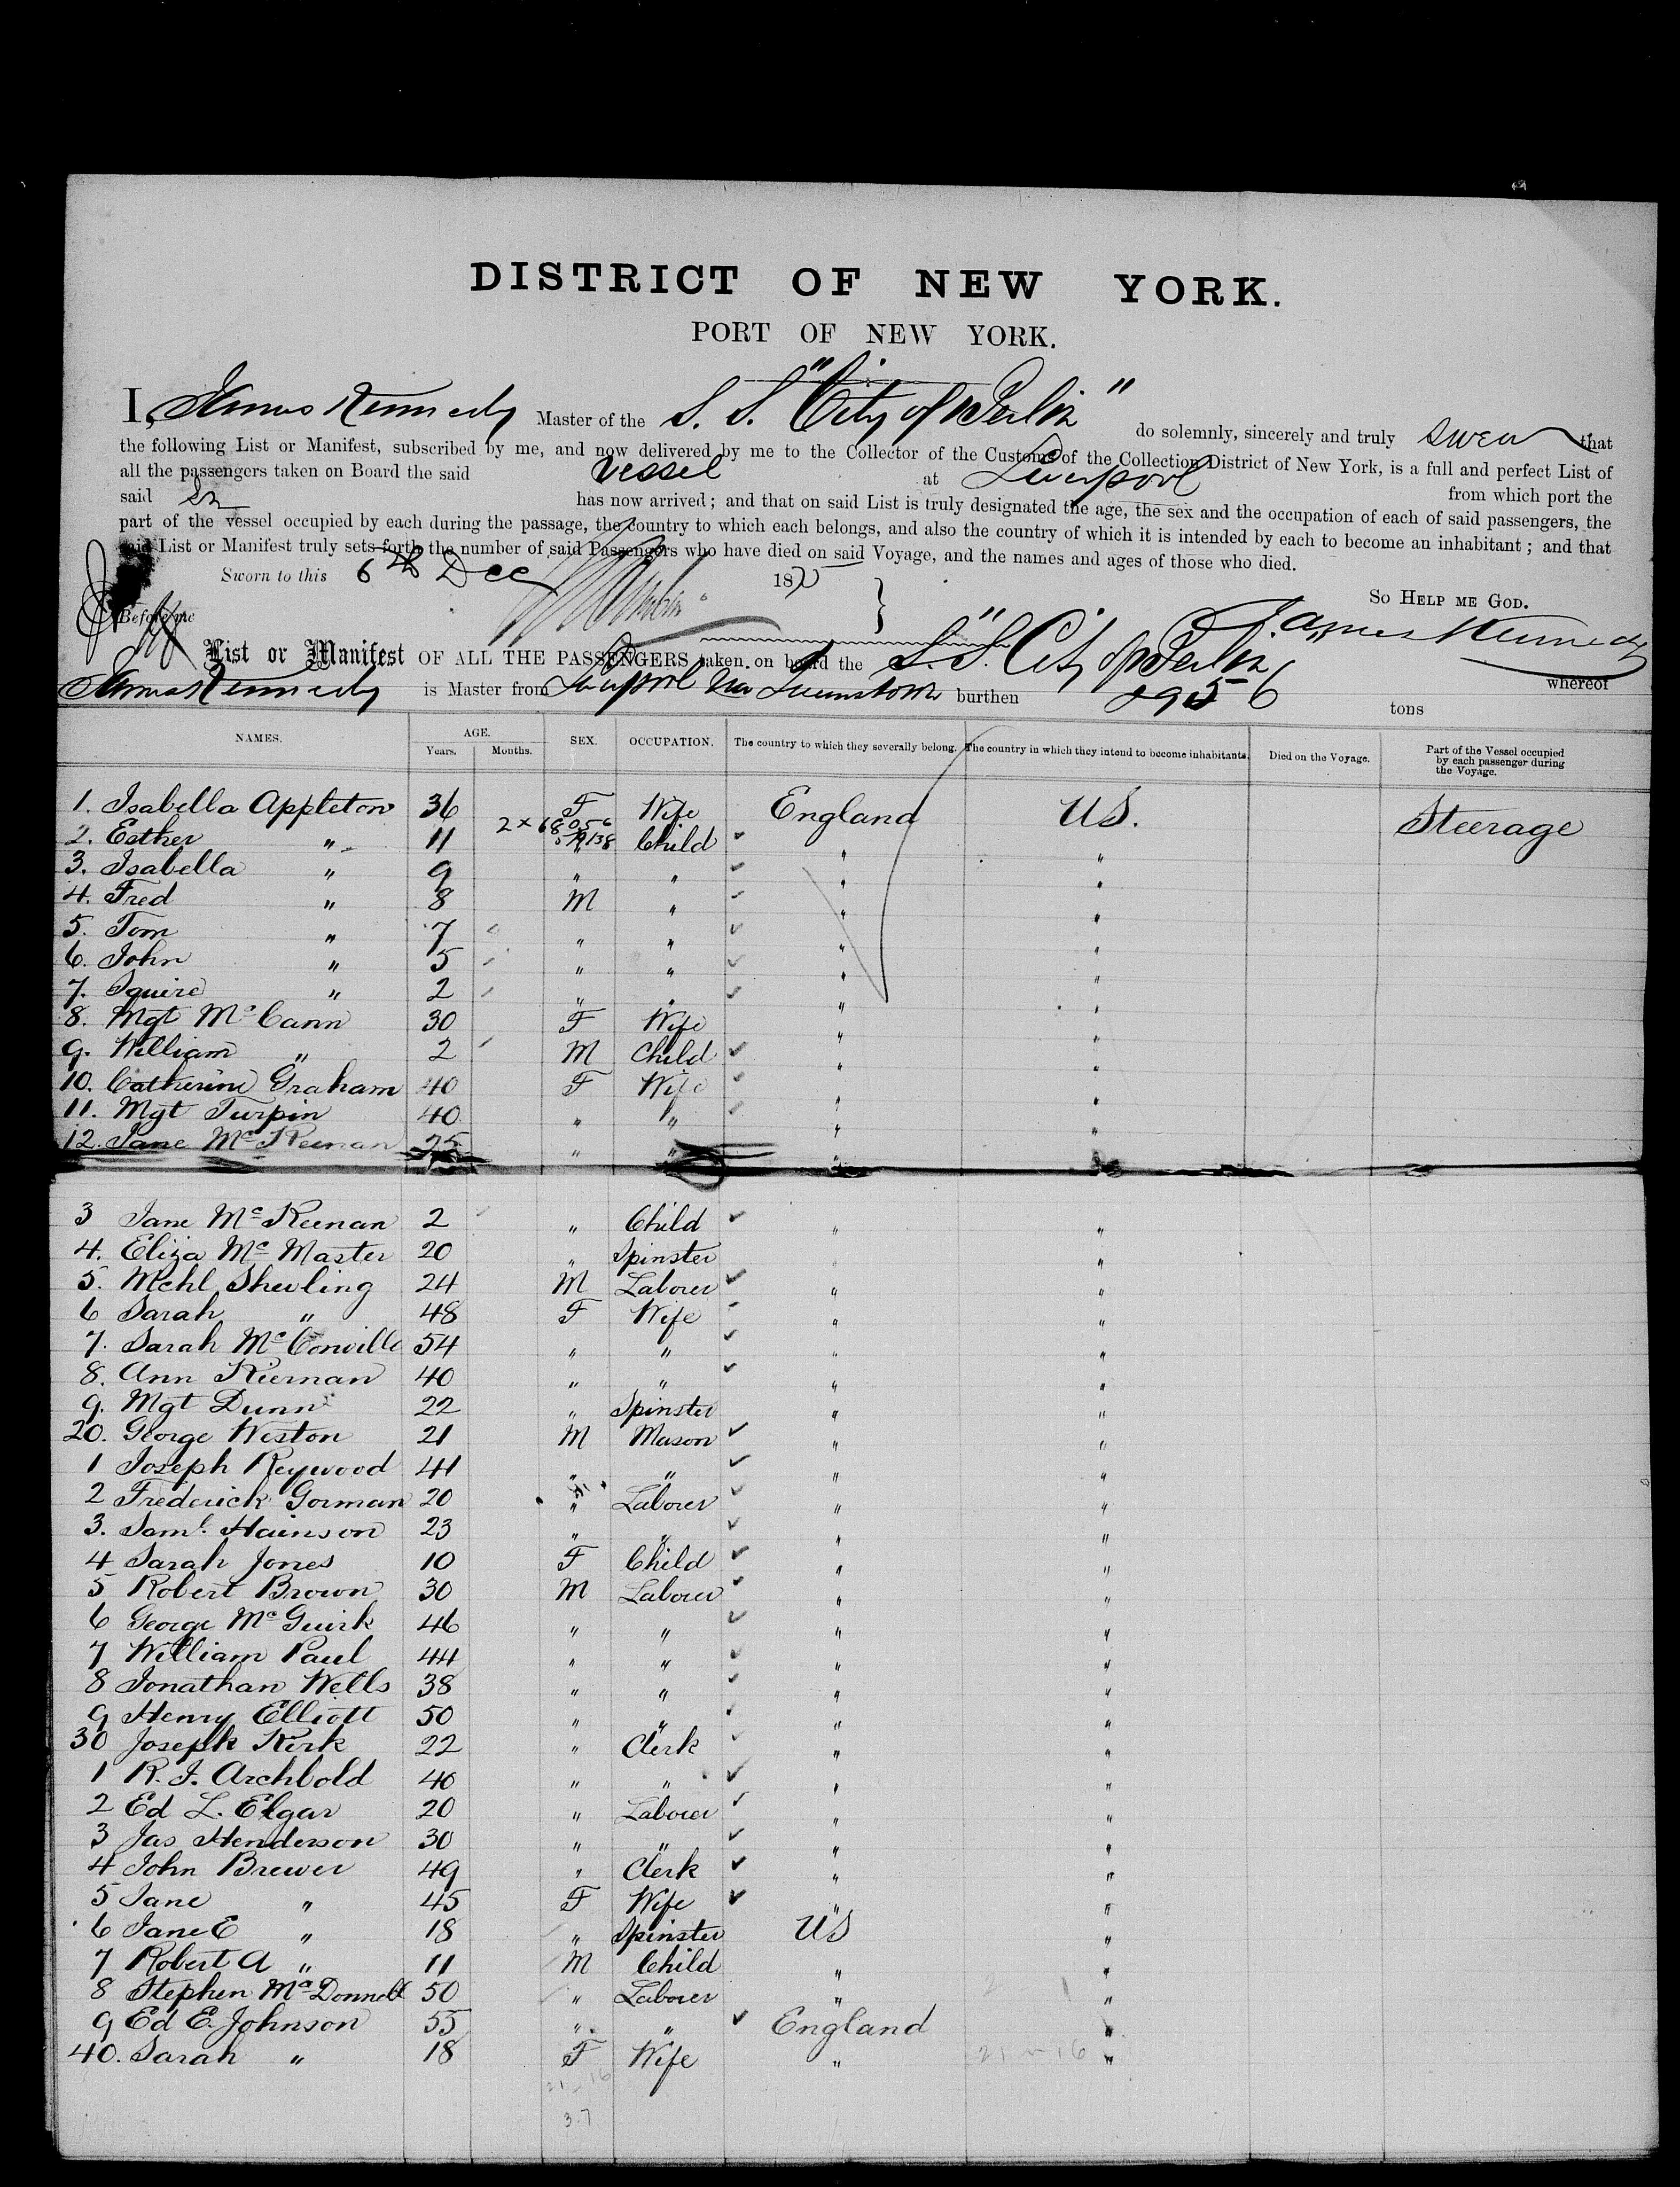 DISTRICT OF NEW YORK.
PORT OF NEW YORK.
I, James Kennedy Master of the S. S. "City of Berlin" do solemnly, sincerely and truly swear that
the following List or Manifest, subscribed by me, and now delivered by me to the Collector of the Customs of the Collection District of New York, is a full and perfect List of
all the passengers taken on Board the said vessel at Liverpool from which port the
said has now arrived; and that on said List is truly designated the age, the sex and the occupation of each of said passengers, the
part of the vessel occupied by each during the passage, the country to which each belongs, and also the country of which it is intended by each to become an inhabitant; and that
said List or Manifest truly sets forth the number of said Passengers who have died on said Voyage, and the names and ages of those who died.
Sworn to this 6th Dec 187
So Help me God.
Before me
James Kennedy
List or Manifest OF ALL THE PASSENGERS taken on board the S.S. City of Berlin whereof
James Kennedy is Master from Liverpool via Queenstown burthen 2956 tons
NAMES. AGE. Years. Months. SEX. OCCUPATION. The country to which they severally belong. The country in which they intend to become inhabitants. Died on the Voyage. Part of the Vessel occupied by each passenger during the Voyage.
1. Isabella Appleton 36 F Wife England US. Steerage
2. Esther " 11 " Child " "
3. Isabella " 9 " " " "
4. Fred " 8 M " " "
5. Tom " 7 " " " "
6. John " 5 " " " "
7. Squire " 2 " " " "
8. Mgt McCann 30 F Wife " "
9. William " 2 M Child " "
10. Catherine Graham 40 F Wife " "
11. Mgt Turpin 40 " " " "
12. Jane McKeenan 25 " " " "
3 Jane McKeenan 2 " Child " "
4. Eliza McMaster 20 " Spinster " "
5. Mchl Shevling 24 M Laborer " "
6 Sarah " 48 F Wife " "
7. Sarah McConville 54 " " " "
8. Ann Kiernan 40 " " " "
9. Mgt Dunn 22 " Spinster " "
20. George Weston 21 M Mason " "
1 Joseph Heywood 41 " " " "
2 Frederick Gorman 20 " Laborer " "
3. Saml. Hainson 23 " " " "
4 Sarah Jones 10 F Child " "
5 Robert Brown 30 M Laborer " "
6 George McGuirk 46 " " " "
7 William Paul 44 " " " "
8 Jonathan Wells 38 " " " "
9 Henry Elliott 50 " " " "
30 Joseph Kirk 22 " Clerk " "
1 R. J. Archbold 40 " " " "
2 Ed L. Elgar 20 " Laborer " "
3 Jas Henderson 30 " " " "
4 John Brewer 49 " Clerk " "
5 Jane " 45 F Wife " "
6 Jane E " 18 " Spinster US "
7 Robert A " 11 M Child " "
8 Stephen McDonnell 50 " Laborer " "
9 Ed E. Johnson 55 " " England "
40. Sarah " 18 F Wife " "
21-16
3.7